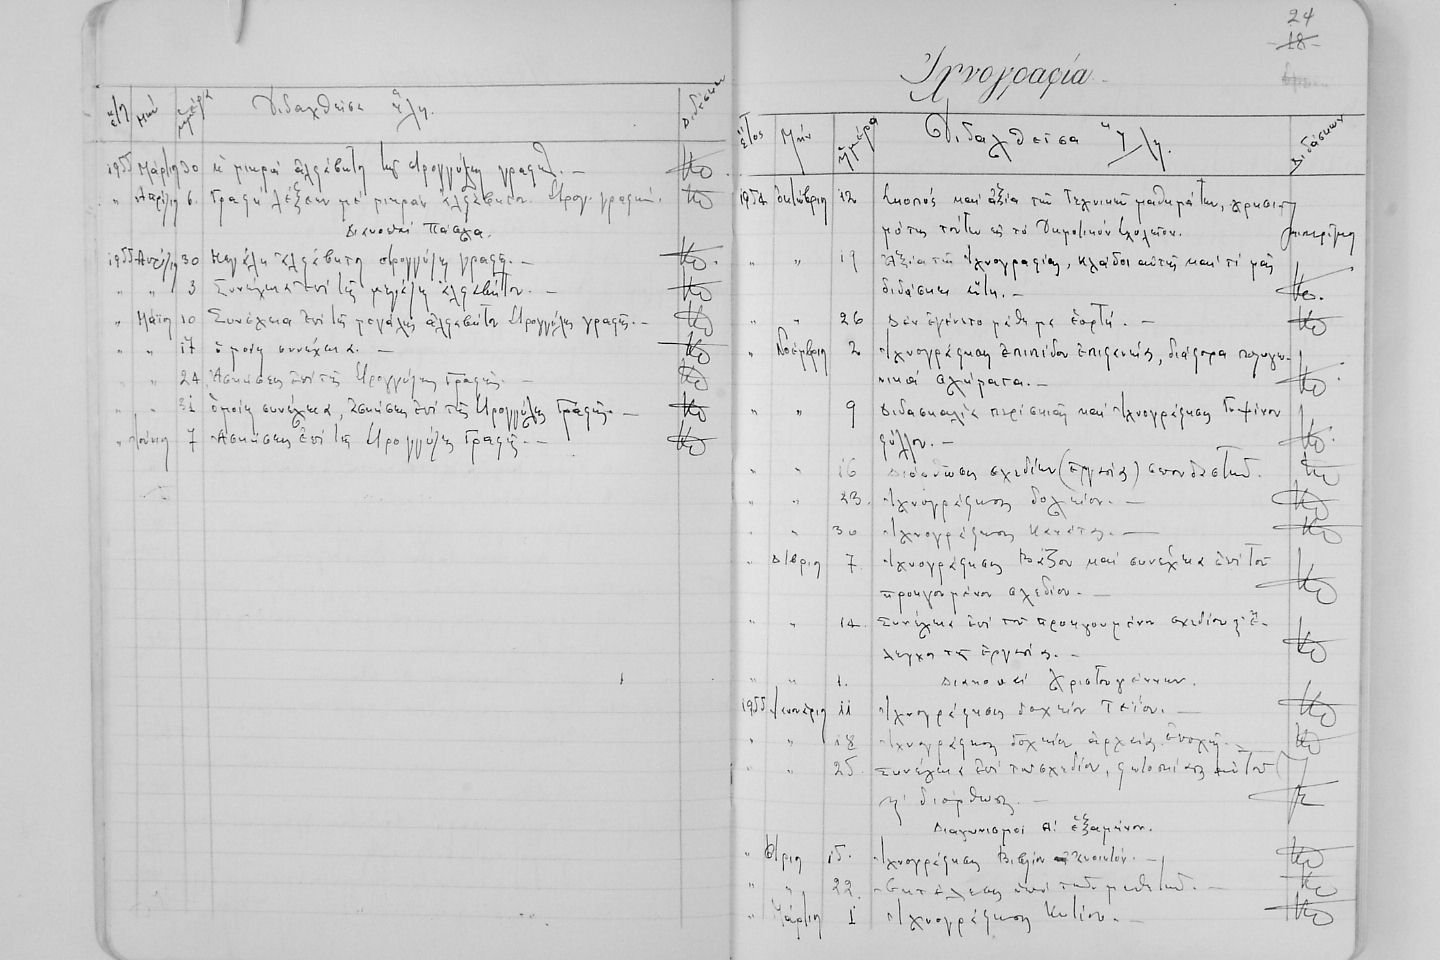 ἔτη μὴν ἡμέρα Διδαχθεῖσα ὕλη. Διδάσκων
1955 Μάρτιος 30 ἡ μικρά ἀλφάβητος τῆς στρογγύλης γραφῆς. —
" Ἀπρίλιος 6. Γραφή λέξεων μέ μικράν ἀλφάβητον. Στρογ. γραφῆς.
Διακοπαί Πάσχα.
1955 Ἀπρίλιος 30 Μεγάλη ἀλφάβητος στρογγύλης γραφῆς. —
" " 3 Συνέχεια ἐπί τῆς μεγάλης ἀλφαβήτου. —
" Μάϊος 10 Συνέχεια ἐπί τῆς μεγάλης ἀλφαβήτου στρογγύλης γραφῆς. —
" " 17 ὁμοίως συνέχεια. —
" " 24 Ἀσκήσεις ἐπί τῆς στρογγύλης γραφῆς. —
" " 31 ὁμοίως συνέχεια, ἀσκήσεις ἐπί τῆς στρογγύλης γραφῆς. —
" Ἰούνιος 7 Ἀσκήσεις ἐπί τῆς στρογγύλης γραφῆς. —
24
18
Ἰχνογραφία
ἔτος Μήν ἡμέρα Διδαχθεῖσα ὕλη. Διδάσκων
1954 Ὀκτώβριος 12 Σκοπός καί ἀξία τῶν Τεχνικῶν μαθημάτων, χρησι-
μότης τούτων εἰς τό Δημοτικόν σχολεῖον.
" " 19 Ἀξία τῆς Ἰχνογραφίας, κλάδοι αὐτῆς καί τί μᾶς
διδάσκει αὕτη. —
" " 26 Δέν ἐγένετο μάθημα ἑορτή. —
" Νοέμβριος 2 Ἰχνογράφησις ἐπιπέδου ἐπιφανείας, διάφορα πολυγω-
νικά σχήματα. —
" " 9 Διδασκαλία περί σκιᾶς καί ἰχνογράφησις Γυψίνου
φύλλου. —
" " 16 Διόρθωσις σχεδίων (ἐργασίας) σπουδαστῶν.
" " 23. Ἰχνογράφησις δοχείου. —
" " 30 Ἰχνογράφησις Κανάτας. —
" Δ/βριος 7. Ἰχνογράφησις Βάζου καί συνέχεια ἐπί τοῦ
προηγουμένου σχεδίου. —
" " 14. Συνέχεια ἐπί τοῦ προηγουμένου σχεδίου κ' ἔ-
λεγχος τῆς ἐργασίας. —
" " 1. Διακοπαί Χριστουγέννων.
1955 Ἰανουάριος 11 Ἰχνογράφησις δοχείου Τεΐου. —
" " 18 Ἰχνογράφησις δοχείου ἀρχαίας ἐποχῆς. —
" " 25. Συνέχεια ἐπί τοῦ σχεδίου, φωτοσκίασις αὐτοῦ
κ' διόρθωσις. —
Διαγωνισμοί Α' ἑξαμήνου.
" Φ/ριος 15. Ἰχνογράφησις Βιβλίου ἀνοικτοῦ. —
" " 22. Ἐκτέλεσις ὑπό τῶν μαθητῶν. —
" Μάρτιος 1 Ἰχνογράφησις Κυτίου. —